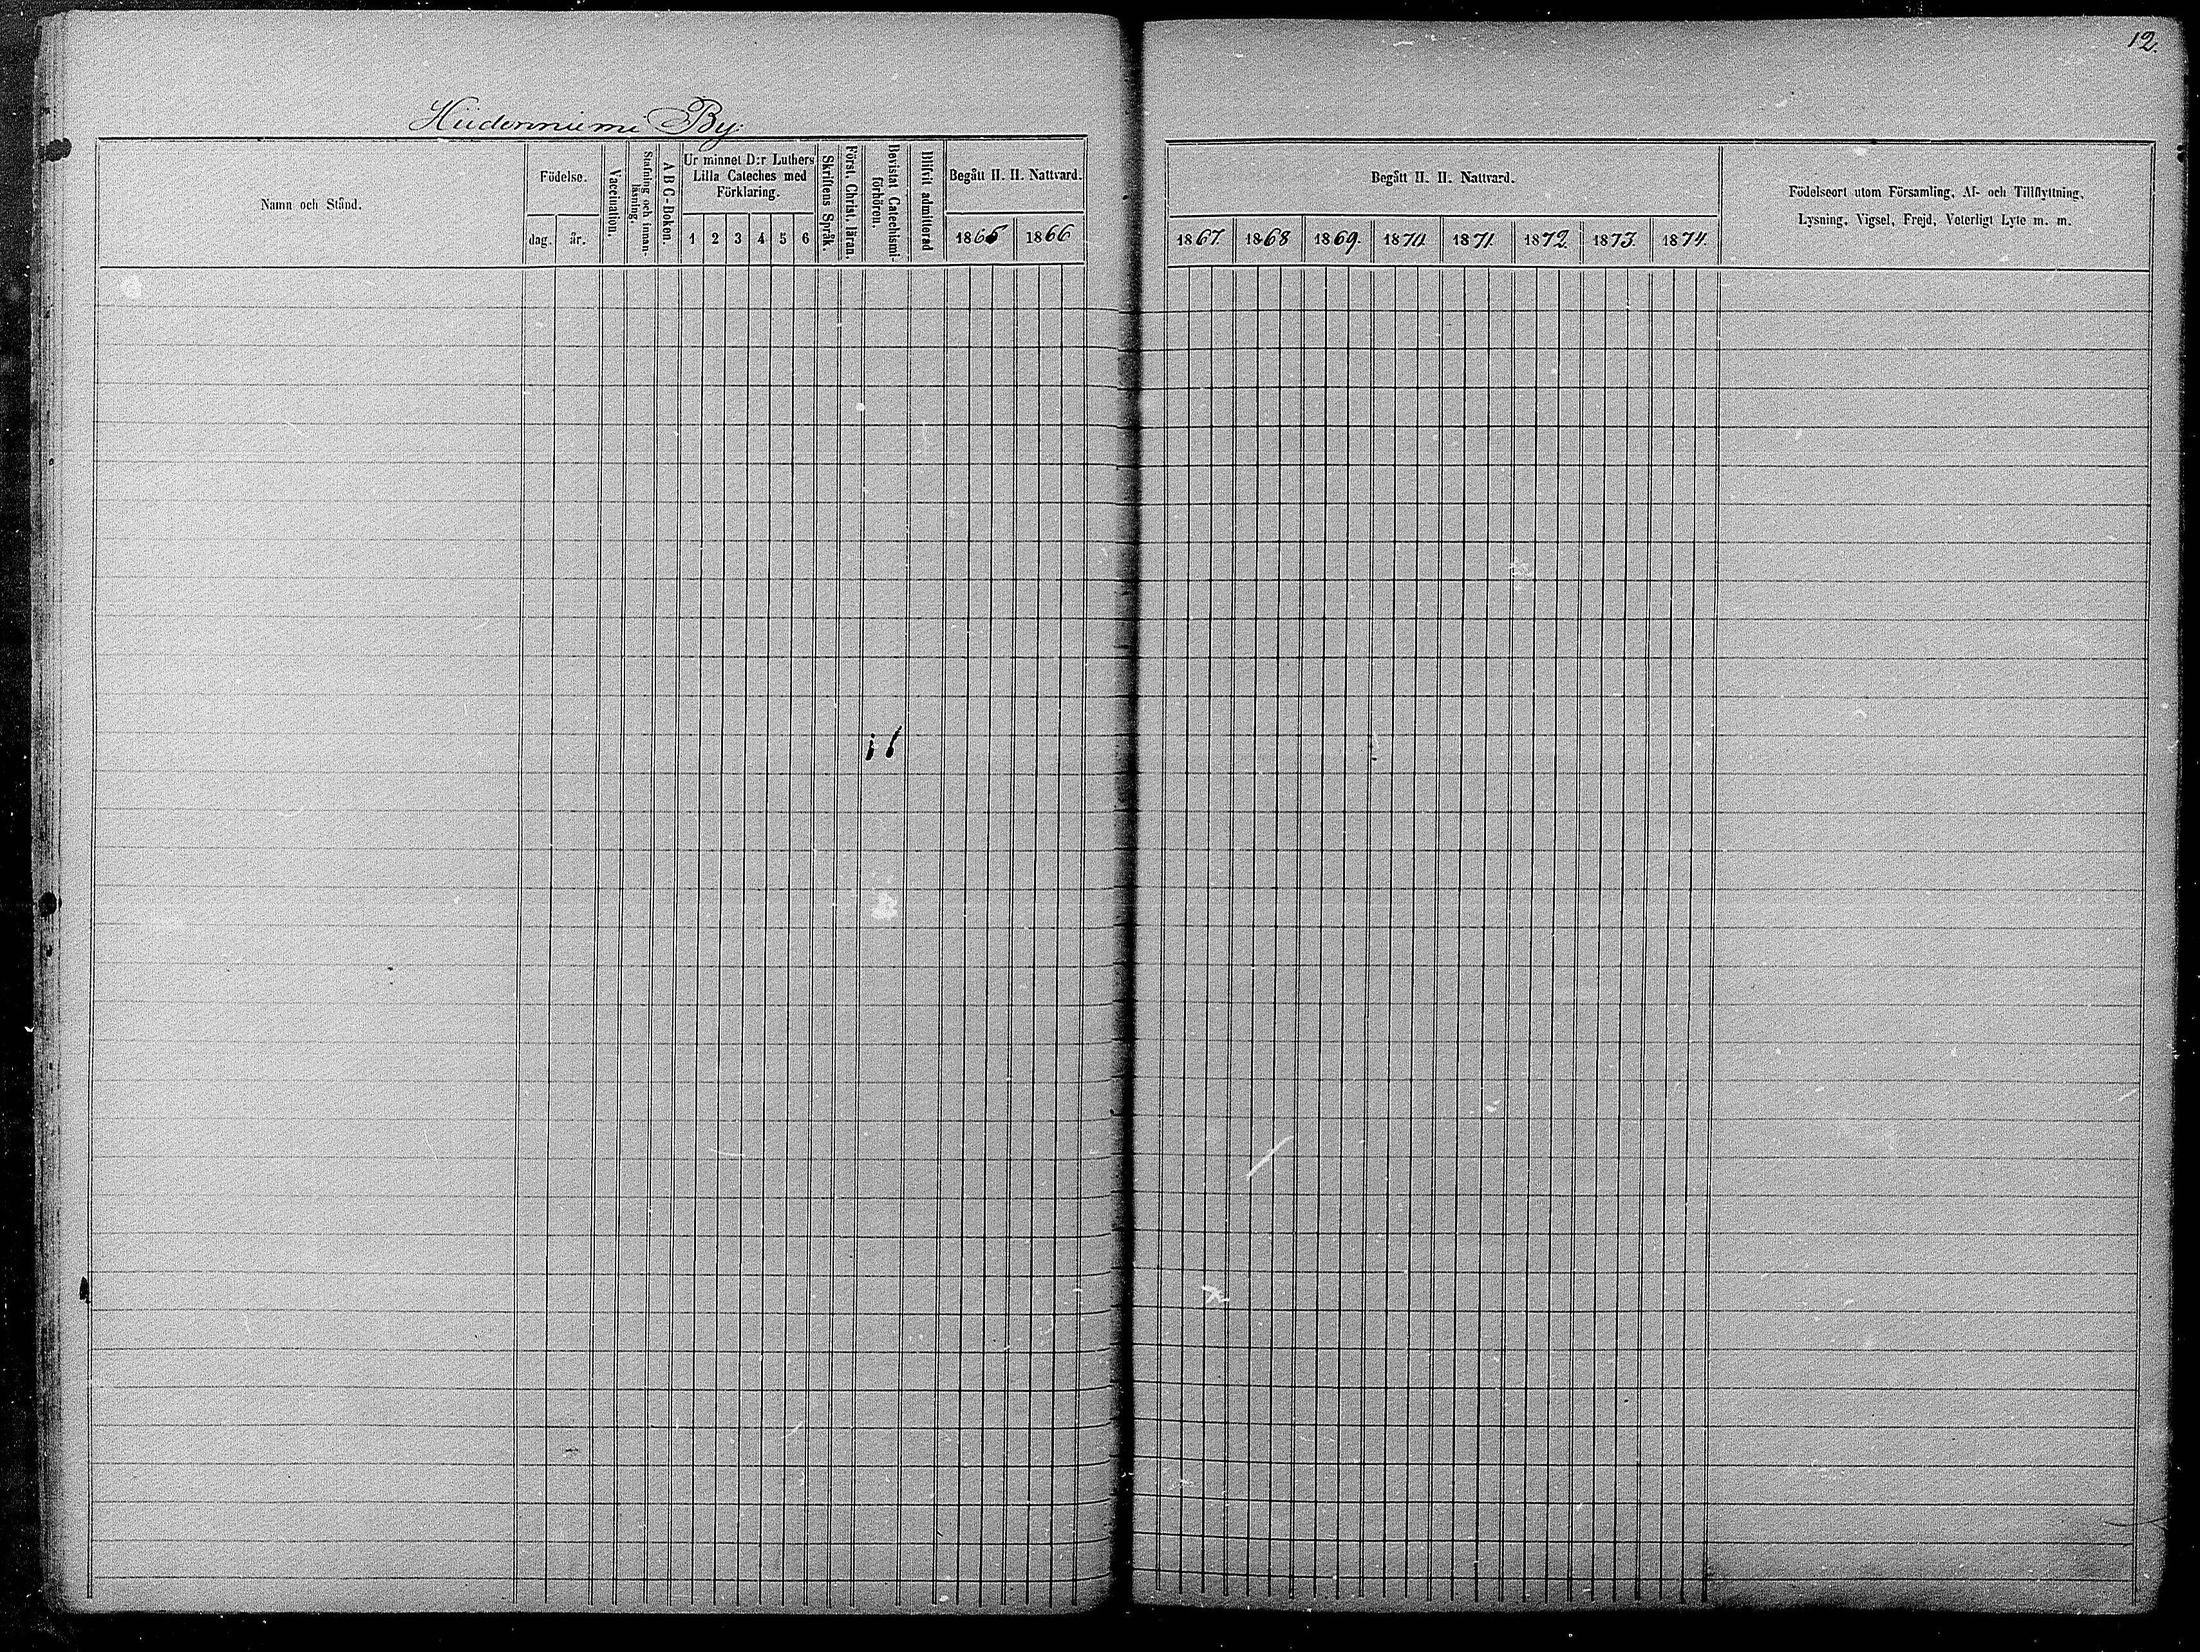 12.
Hiidenniemi By.
Namn och Stånd.
Födelse.
dag.
år.
Vaccination.
Stafning och innanläsning.
A B C-Boken.
Ur minnet D:r Luthers
Lilla Cateches med
Förklaring.
1 2 3 4 5 6
Skriftens Språk
Först. Christ. läran.
Bevistat Catechismi-
förhören.
Blifvit admitterad
Begått H. H. Nattvard.
1865 1866
Begått H. H. Nattvard.
1867. 1868 1869. 1870 1871. 1872. 1873. 1874.
Födelseort utom Församling, Af- och Tillflyttning,
Lysning, Vigsel, Frejd, Veterligt Lyte m. m.